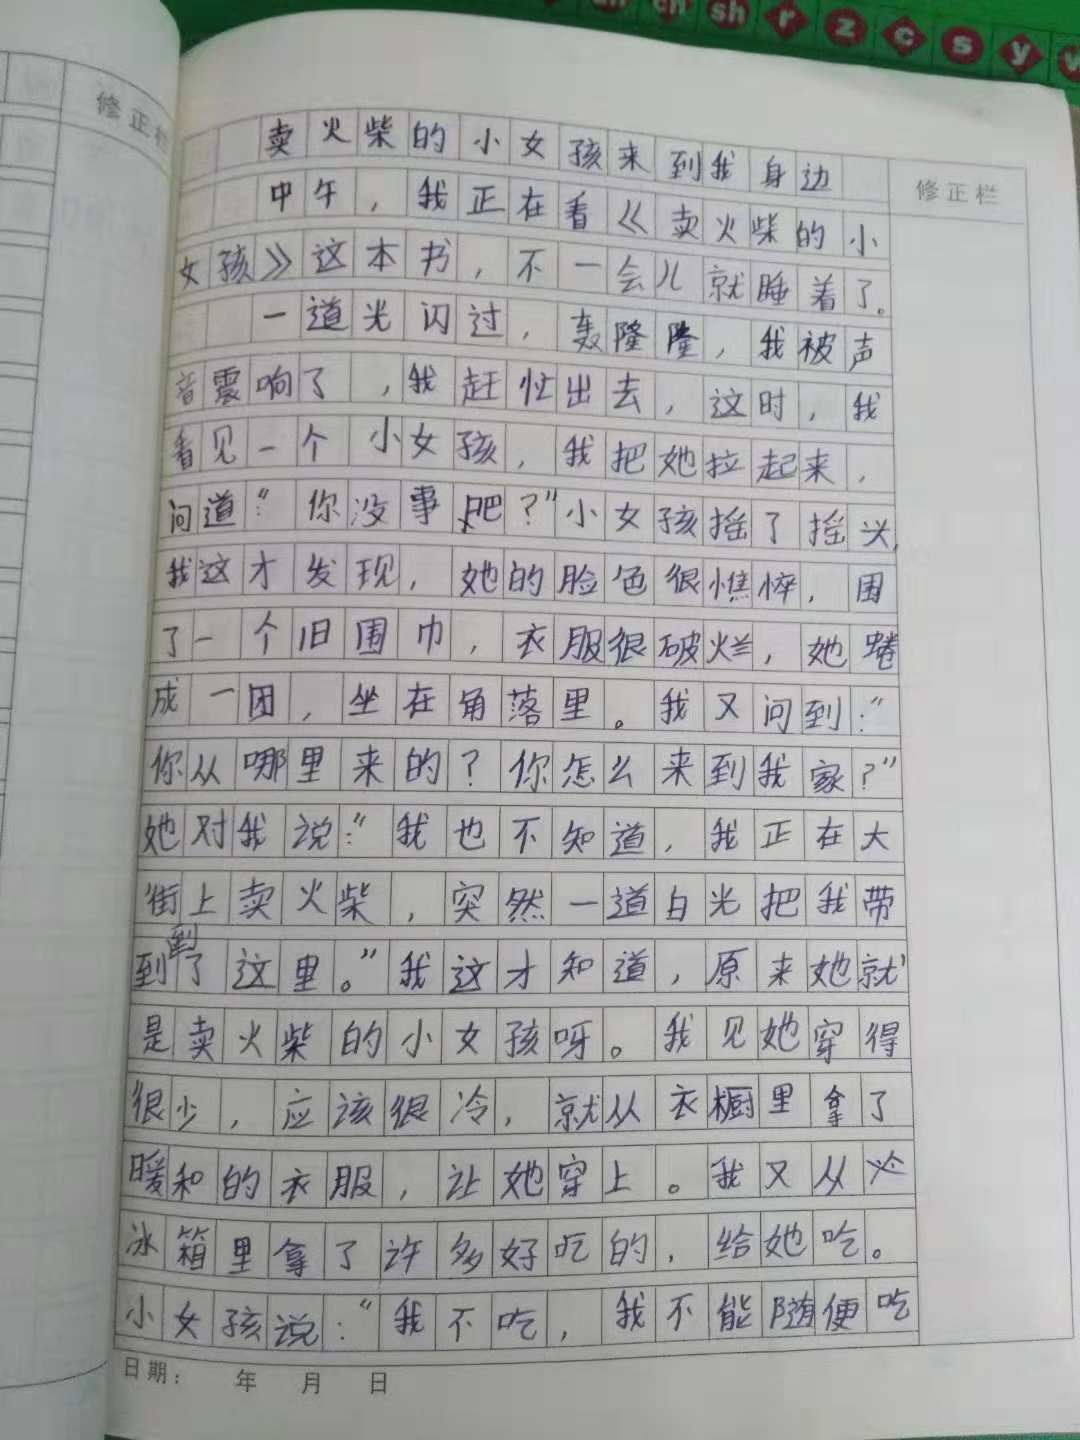 sh r z c s y
修正栏
修正栏
卖火柴的小女孩来到我身边
中午，我正在看《卖火柴的小
女孩》这本书，不一会儿就睡着了。
一道光闪过，轰隆隆，我被声
音震响了，我赶忙出去，这时，我
看见一个小女孩，我把她拉起来，
问道：“你没事吧？”小女孩摇了摇头，
我这才发现，她的脸色很憔悴，围
了一个旧围巾，衣服很破烂，她蜷
成一团，坐在角落里。我又问到：“
你从哪里来的？你怎么来到我家？”
她对我说：“我也不知道，我正在大
街上卖火柴，突然一道白光把我带
到了这里。”我这才知道，原来她就
是卖火柴的小女孩呀。我见她穿得
很少，应该很冷，就从衣橱里拿了
暖和的衣服，让她穿上。我又从
冰箱里拿了许多好吃的，给她吃。
小女孩说：“我不吃，我不能随便吃
日期： 年 月 日